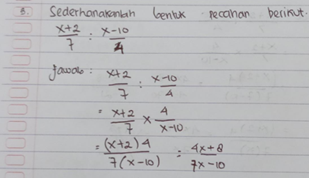 3. Sederhanakanlah bentuk pecahan berikut.
x+2/7 : x-10/4
Jawab : x+2/7 : x-10/4
= x+2/7 × 4/x-10
= (x+2)4/7(x-10) = 4x+8/7x-10